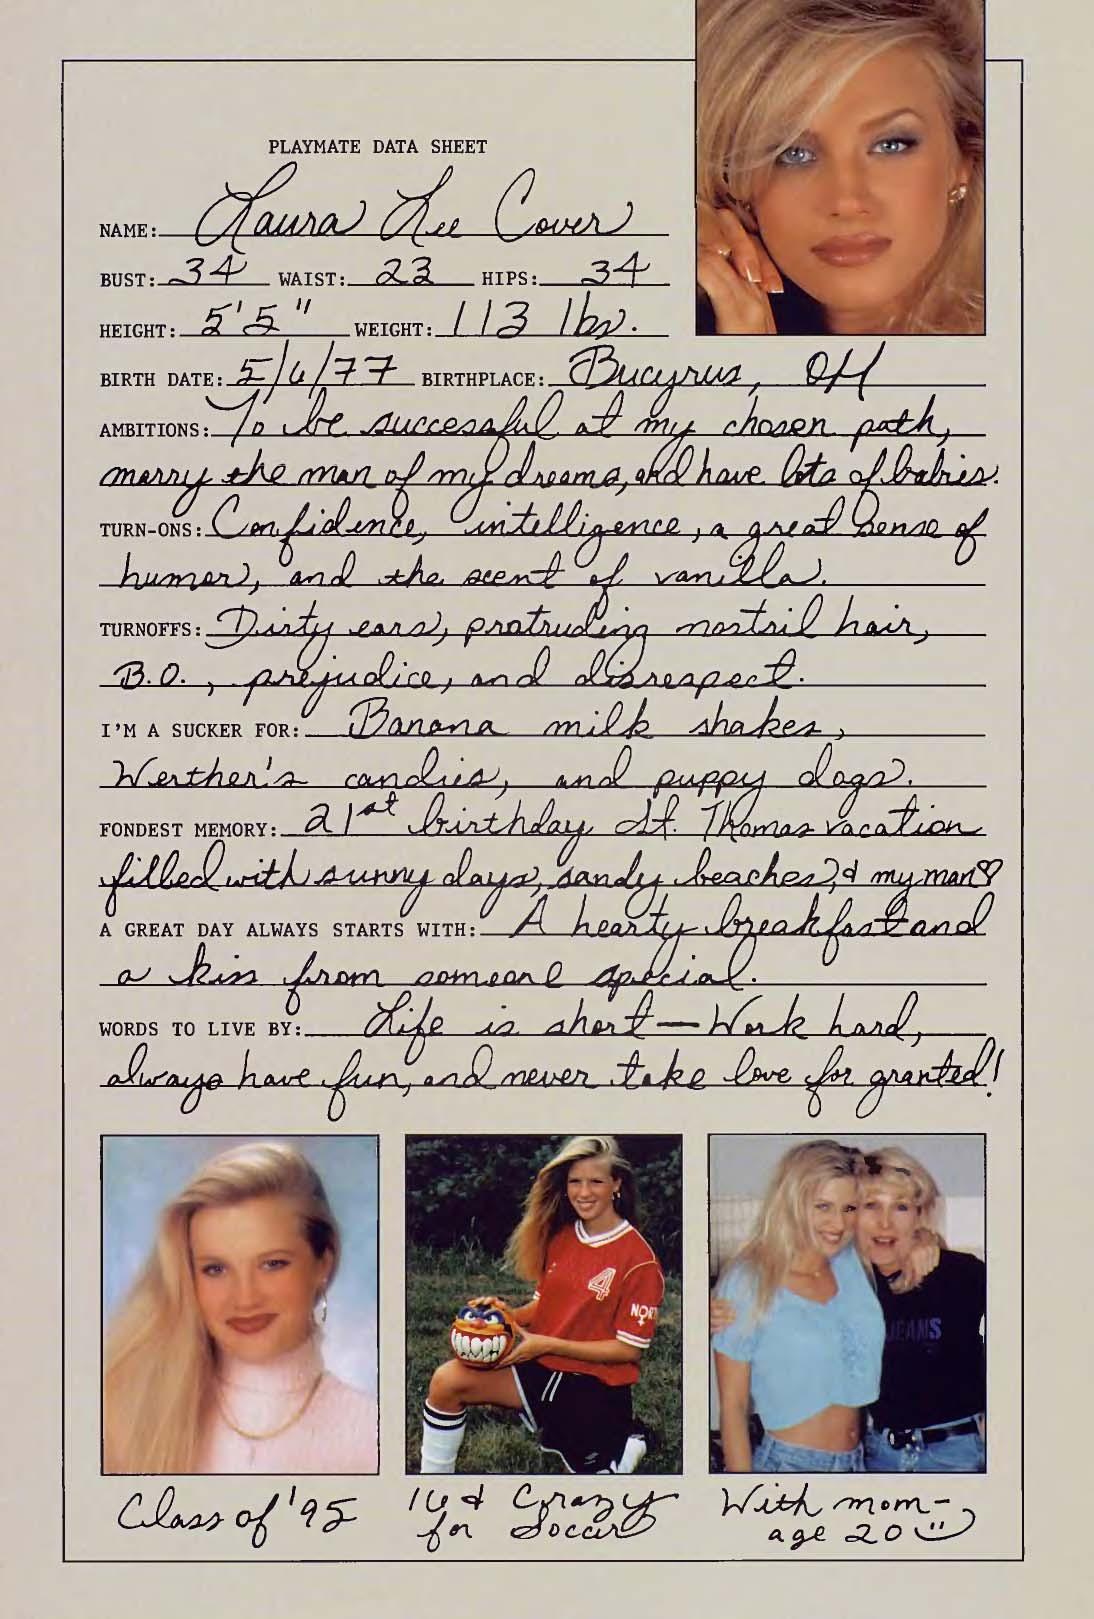 PLAYMATE DATA SHEET
NAME: Laura Lee Cover
BUST: 34 WAIST: 23 HIPS: 34
HEIGHT: 5'5" WEIGHT: 113 lbs.
BIRTH DATE: 5/6/77 BIRTHPLACE: Bucyrus, OH
AMBITIONS: To be successful at my chosen path,
marry the man of my dreams, and have lots of babies.
TURN-ONS: Confidence, intelligence, a great sense of
humor, and the scent of vanilla.
TURNOFFS: Dirty ears, protruding nostril hair,
B.O., prejudice, and disrespect.
I'M A SUCKER FOR: Banana milk shakes,
Werther's candies, and puppy dogs.
FONDEST MEMORY: 21st birthday St. Thomas vacation
filled with sunny days, sandy beaches, & my man ♡
A GREAT DAY ALWAYS STARTS WITH: A hearty breakfast and
a kiss from someone special.
WORDS TO LIVE BY: Life is short — Work hard,
always have fun, and never take love for granted!
4
NORT
JEANS
Class of '95
16 & Crazy
for Soccer
With mom-
age 20